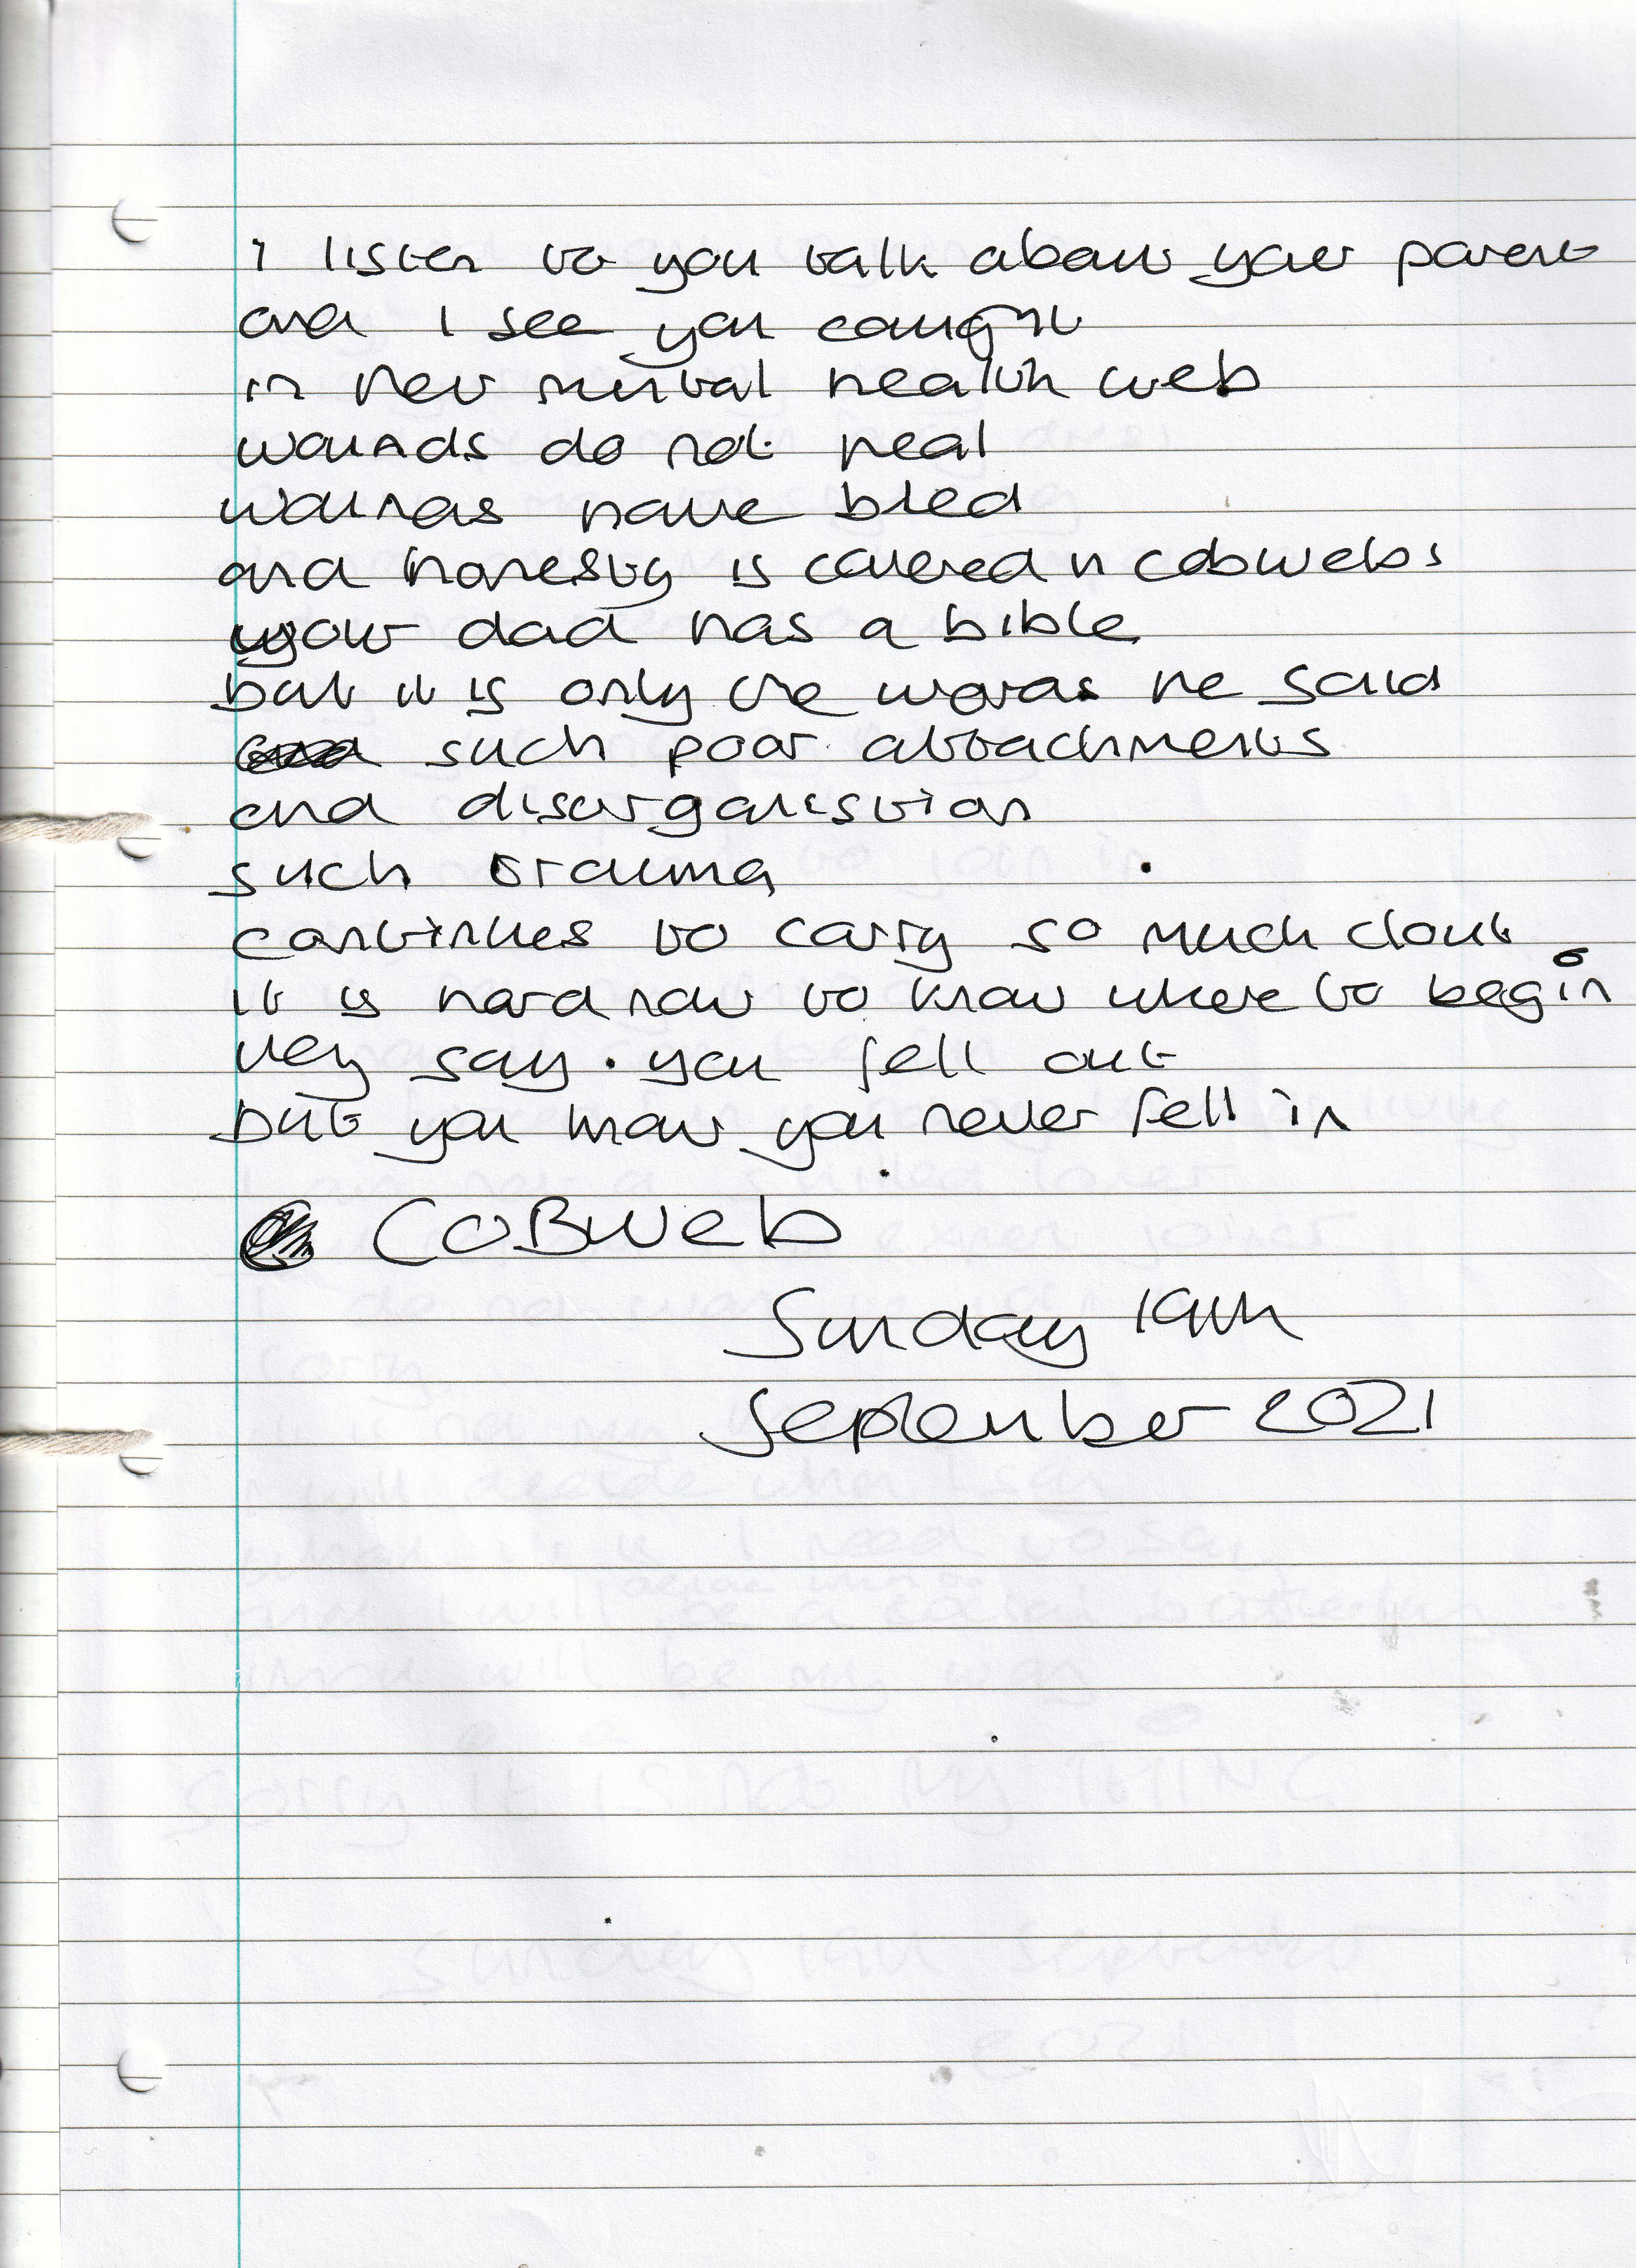 I listen to you talk about your parent
and I see you caught
in her mental health web
wounds do not heal
wounds have bled
and honesty is covered in cobwebs
your dad has a bible
but it is only the words he said
such poor attachments
and disorganistion
such trauma
continues to carry so much clout
it is hard now to know where to begin
they say you fell out
but you know you never fell in
COBWeb
Sunday 19th
September 2021